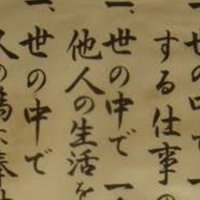 世の中で一
する仕事の
一、世の中で一
他人の生活を
一、世の中で
人の為に奉